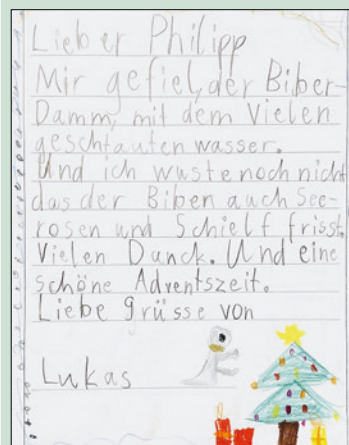 Lieber Philipp
Mir gefiel, der Biber-
Damm, mit dem Vielen
geschtauten wasser.
Und ich wuste noch nicht
das der Biben auch See-
rosen und Schielf frisst.
Vielen Danck. Und eine
schöne Adventszeit.
Liebe grüsse von
Lukas